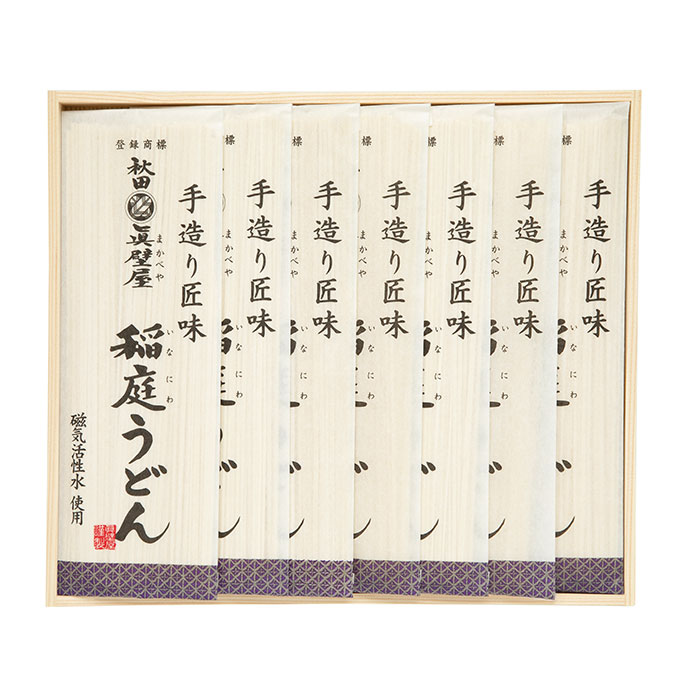 登録商標
手造り匠味
秋田
眞壁屋
まかべや
稲庭うどん
いなにわ
磁気活性水 使用
標
手造り匠味
まかべや
いなにわ
標
手造り匠味
まかべや
いなにわ
標
手造り匠味
まかべや
いなにわ
標
手造り匠味
まかべや
いなにわ
標
手造り匠味
まかべや
いなにわ
標
手造り匠味
まかべや
いなにわ